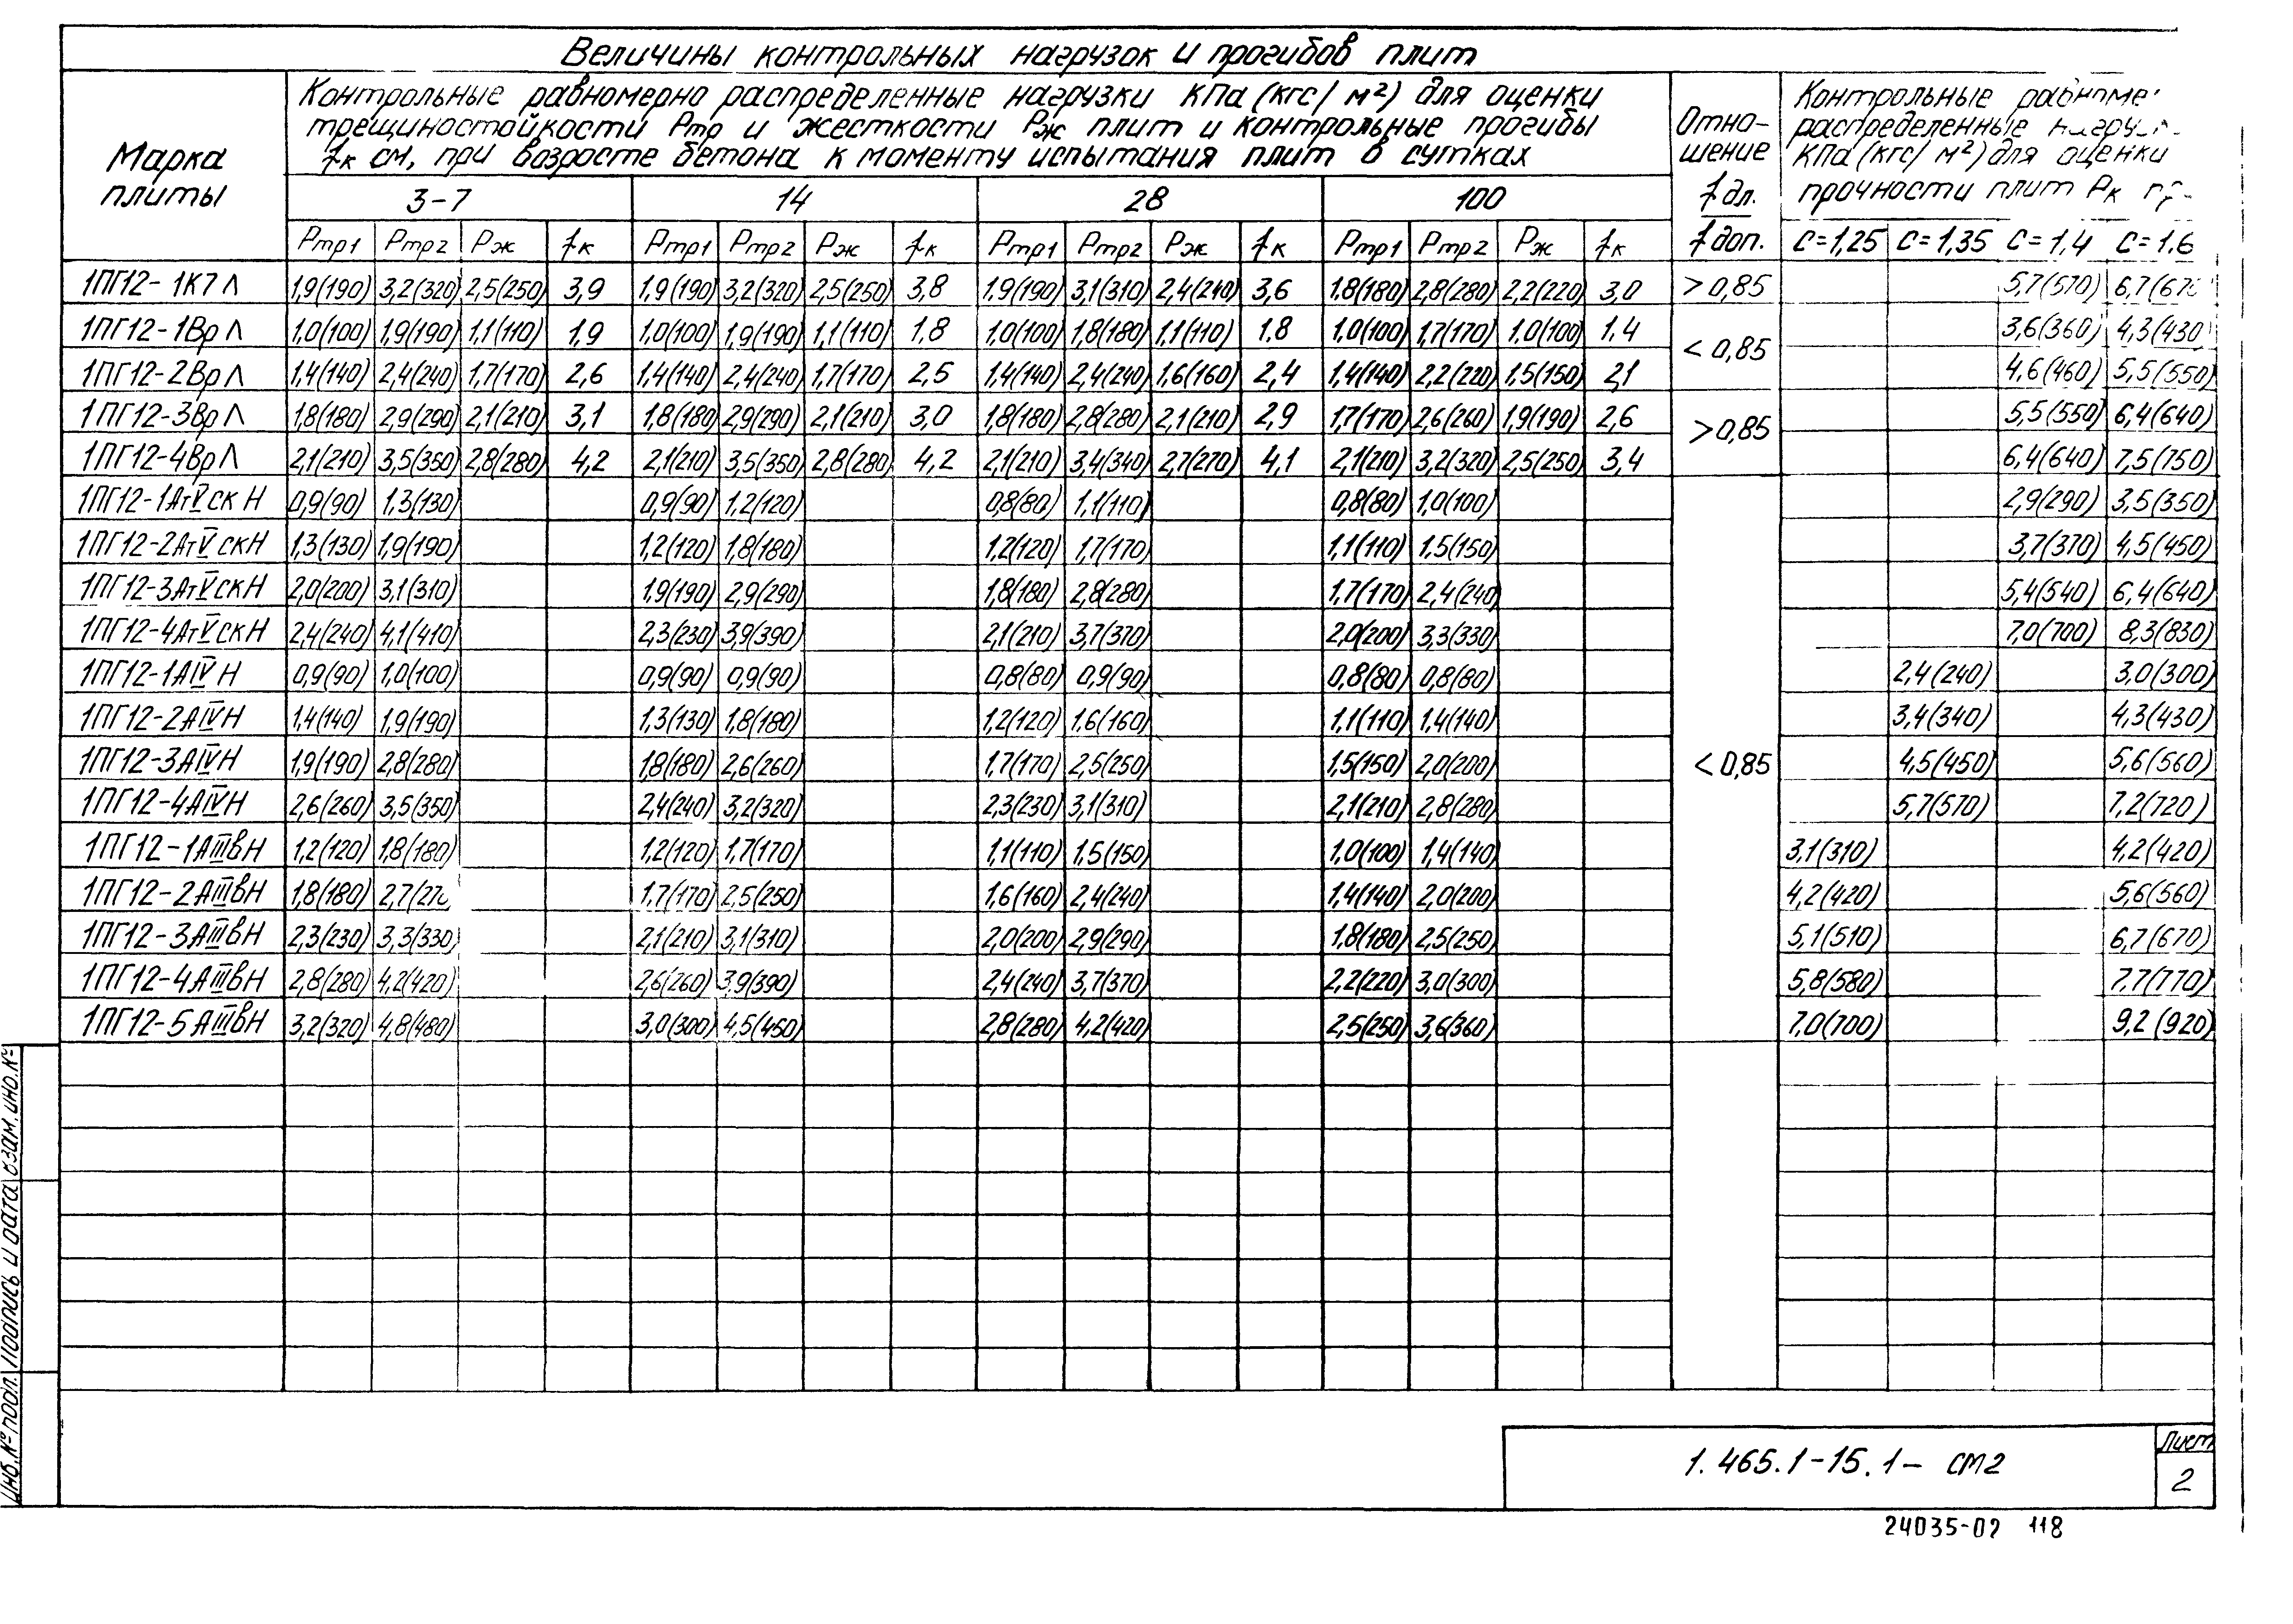 Величины контрольных нагрузок и прогибов плит
Марка плиты
Контрольные равномерно распределенные нагрузки КПа (кгс/м²) для оценки
трещиностойкости Ртр и жесткости Рж плит и контрольные прогибы
fк см, при возросте бетона к моменту испытания плит в сутках
Отно-
шение
f дл.
f доп.
Контрольные
распределенные
КПа (кгс/м²) для оценки
прочности плит Рк
3-7 14 28 100
Ртр1 Ртр2 Рж fк Ртр1 Ртр2 Рж fк Ртр1 Ртр2 Рж fк Ртр1 Ртр2 Рж fк С=1,25 С=1,35 С=1,4 С=1.6
1ПГ12-1К7Л 1,9(190) 3,2(320) 2,5(250) 3,9 1,9(190) 3,2(320) 2,5(250) 3,8 1,9(190) 3,1(310) 2,4(240) 3,6 1.8(180) 2,8(280) 2,2(220) 3,0 >0,85 5,7(570) 6,7(670
1ПГ12-1ВрЛ 1,0(100) 1,9(190) 1,1(110) 1,9 1,0(100) 1,9(190) 1,1(110) 1,8 1,0(100) 1,8(180) 1,1(110) 1,8 1,0(100) 1,7(170) 1.0(100) 1,4 <0,85 3,6(360) 4,3(430)
1ПГ12-2ВрЛ 1,4(140) 2,4(240) 1,7(170) 2,6 1,4(140) 2,4(240) 1,7(170) 2,5 1,4(140) 2,4(240) 1,6(160) 2,4 1,4(140) 2,2(220) 1,5(150) 2,1 4,6(460) 5,5(550)
1ПГ12-3ВрЛ 1,8(180) 2,9(290) 2,1(210) 3,1 1,8(180) 2,9(290) 2,1(210) 3,0 1,8(180) 2,8(280) 2,1(210) 2,9 1,7(170) 2,6(260) 1,9(190) 2,6 >0,85 5,5(550) 6,4(640)
1ПГ12-4ВрЛ 2,1(210) 3,5(350) 2,8(280) 4,2 2,1(210) 3,5(350) 2,8(280) 4,2 2,1(210) 3,4(340) 2,7(270) 4,1 2,1(210) 3,2(320) 2,5(250) 3,4 6,4(640) 7,5(750)
1ПГ12-1АтVскН 0,9(90) 1,3(130) 0,9(90) 1,2(120) 0,8(80) 1,1(110) 0,8(80) 1,0(100) 2,9(290) 3,5(350)
1ПГ12-2АтVскН 1,3(130) 1,9(190) 1,2(120) 1,8(180) 1,2(120) 1,7(170) 1,1(110) 1.5(150) 3,7(370) 4,5(450)
1ПГ12-3АтVскН 2,0(200) 3,1(310) 1,9(190) 2,9(290) 1,8(180) 2,8(280) 1,7(170) 2,4(240) 5,4(540) 6,4(640)
1ПГ12-4АтVскН 2,4(240) 4,1(410) 2,3(230) 3,9(390) 2,1(210) 3,7(370) 2,0(200) 3,3(330) 7,0(700) 8,3(830)
1ПГ12-1АIVН 0,9(90) 1,0(100) 0,9(90) 0,9(90) 0,8(80) 0,9(90) 0,8(80) 0,8(80) 2,4(240) 3,0(300)
1ПГ12-2АIVН 1,4(140) 1,9(190) 1,3(130) 1,8(180) 1,2(120) 1,6(160) 1,1(110) 1,4(140) 3,4(340) 4,3(430)
1ПГ12-3АIVН 1,9(190) 2,8(280) 1,8(180) 2,6(260) 1,7(170) 2,5(250) 1,5(150) 2,0(200) <0,85 4,5(450) 5,6(560)
1ПГ12-4АIVН 2,6(260) 3,5(350) 2,4(240) 3,2(320) 2,3(230) 3,1(310) 2,1(210) 2,8(280) 5,7(570) 7,2(720)
1ПГ12-1АIIIвН 1,2(120) 1,8(180) 1,2(120) 1,7(170) 1,1(110) 1,5(150) 1,0(100) 1,4(140) 3,1(310) 4,2(420)
1ПГ12-2АIIIвН 1,8(180) 2,7(270 1,7(170) 2,5(250) 1,6(160) 2,4(240) 1,4(140) 2,0(200) 4,2(420) 5,6(560)
1ПГ12-3АIIIвН 2,3(230) 3,3(330) 2,1(210) 3,1(310) 2,0(200) 2,9(290) 1,8(180) 2,5(250) 5,1(510) 6,7(670)
1ПГ12-4АIIIвН 2,8(280) 4,2(420) 2,6(260) 3,9(390) 2,4(240) 3,7(370) 2,2(220) 3,0(300) 5,8(580) 7,7(770)
1ПГ12-5АIIIвН 3,2(320) 4,8(480) 3,0(300) 4,5(450) 2,8(280) 4,2(420) 2,5(250) 3,6(360) 7,0(700) 9,2(920)
Инв.№ подл. Подпись и дата Взам.инв.№
1.465.1-15.1- СМ2
Лист
2
24035-02 118